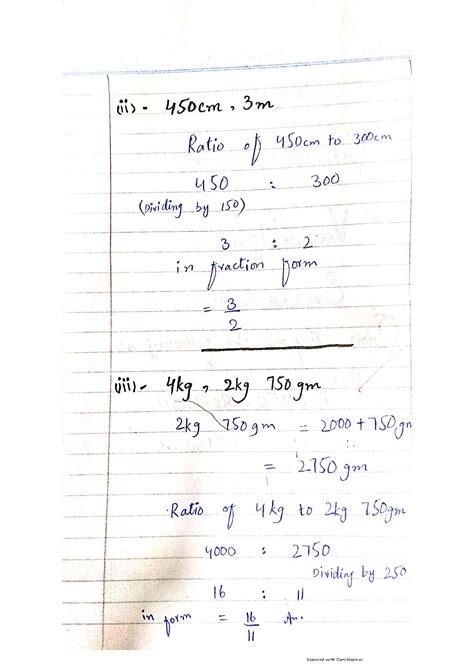 (ii) - 450cm, 3m
Ratio of 450cm to 300cm
450 : 300
(Dividing by 150)
3 : 2
in fraction form
= 3/2
(iii) - 4kg, 2kg 750gm
2kg 750gm = 2000 + 750gm
= 2750gm
Ratio of 4kg to 2kg 750gm
4000 : 2750
Dividing by 250
16 : 11
in form = 16/11 An.
Scanned with CamScanner